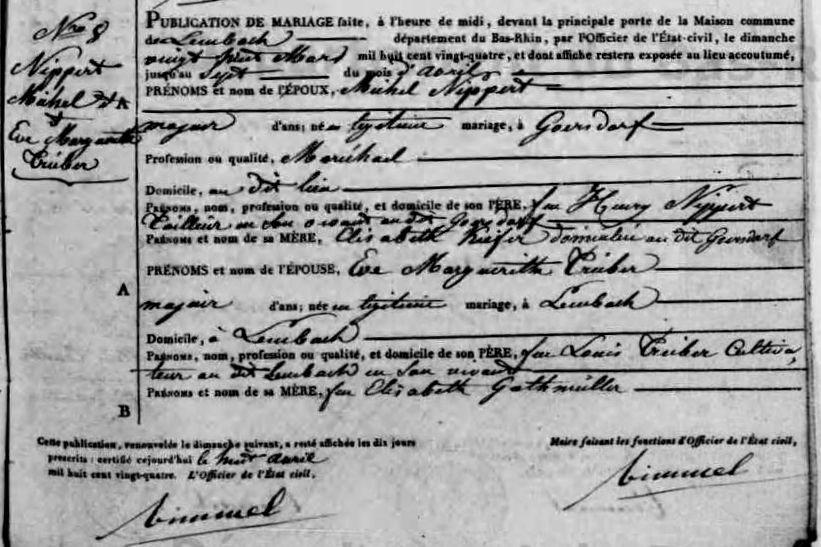 Nro 8
Nippert
Michel &
Eve Marguerithe
Trüber
PUBLICATION DE MARIAGE faite, à l'heure de midi, devant la principale porte de la Maison commune
de Lembach département du Bas-Rhin, par l'Officier de l'État-civil, le dimanche
vingt huit Mars mil huit cent vingt-quatre, et dont affiche restera exposée au lieu accoutumé,
jusqu'au Sept du mois d'avril
PRÉNOMS et nom de l'ÉPOUX, Michel Nippert
A
majeur d'ans; né en légitime mariage, à Goersdorf
Profession ou qualité, Maréchal
Domicile, au dit lieu
PRÉNOMS, nom, profession ou qualité, et domicile de son PÈRE, feu Henry Nippert
Tailleur en son vivant au dit Goersdorf
PRÉNOMS et nom de sa MÈRE, Elisabeth Kiefer domiciliée au dit Goersdorf
PRÉNOMS et nom de l'ÉPOUSE, Eve Marguerithe Trüber
A
majeur d'ans; née en légitime mariage, à Lembach
Domicile, à Lembach
PRÉNOMS, nom, profession ou qualité, et domicile de son PÈRE, feu Louis Trüber Cultiva,
teur au dit Lembach en son vivant
PRÉNOMS et nom de sa MÈRE, feu Elisabeth Gathmüller
B
Cette publication, renouvelée le dimanche suivant, a resté affichée les dix jours
prescrits : certifié cejourd'hui le huit avril
mil huit cent vingt-quatre. L'Officier de l'État civil,
Maire faisant les fonctions d'Officier de l'État civil,